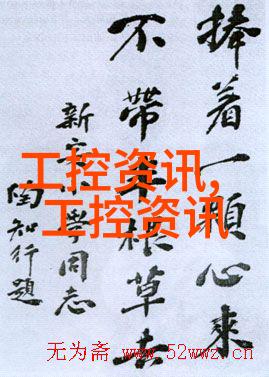 捧着一颗心来
不带半根草去
新安小学同志
陶知行题
工控资讯,
工控资讯
无为斋 www.52wwz.cn